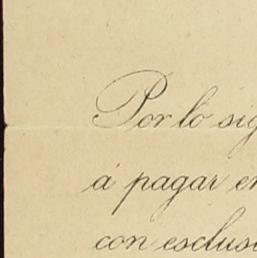 Por lo sig
á pagar en
con esclusi